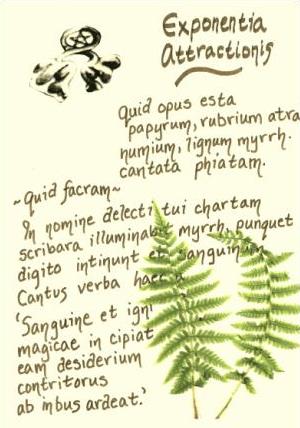 Exponentia
Attractionis
Quid opus esta
papyrum, rubrium atra
numium, lignum myrrh.
cantata phiatam.
~Quid facram~
In nomine delecti tui chartam
scribara illuminabit myrrh, punquet
digito intinunt et sanguinum
Cantus verba haec
'Sanguine et igni
magicae in cipiat
eam desiderium
contritorus
ab inbus ardeat.'